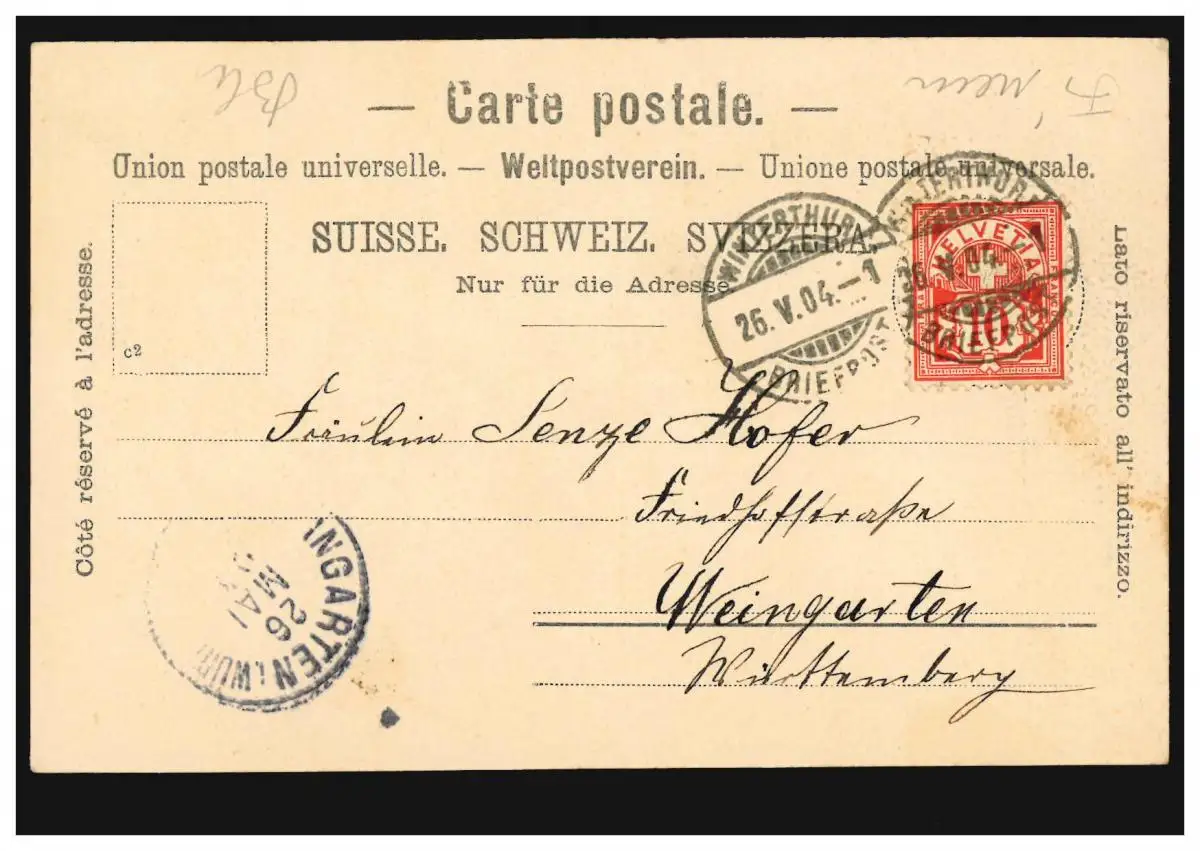 — Carte postale. —
Union postale universelle. — Weltpostverein. — Unione postale universale.
SUISSE. SCHWEIZ. SVIZZERA.
Nur für die Adresse
Côté réservé à l'adresse.
c2
WINTERTHUR
26. V. 04. – 1
BRIEFPOST
WINTERTHUR
26. V. 04. 1
BRIEFPOST
HELVETIA
FRANCO
10
Lato riservato all' indirizzo.
Fräulein Senze Hofer
Friedhofstraße
Weingarten
Württemberg
INGARTEN (WÜRT
26
MAI